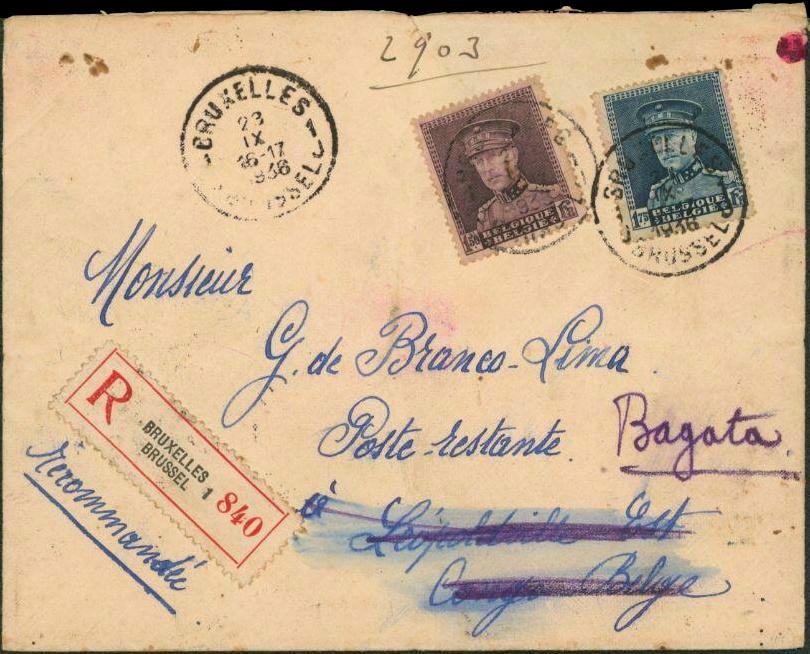 2903
BRUXELLES
23
IX
16-17
1936
BRUSSEL
BELGIQUE
BELGIE
1F75
BELGIQUE
BELGIE
BRUXELLES
IX
1936
BRUSSEL
Monsieur
G. de Branco-Lima
Poste-restante. Bagata.
à Léopoldville Est
Congo Belge
R
BRUXELLES
BRUSSEL 1
840
recommandée